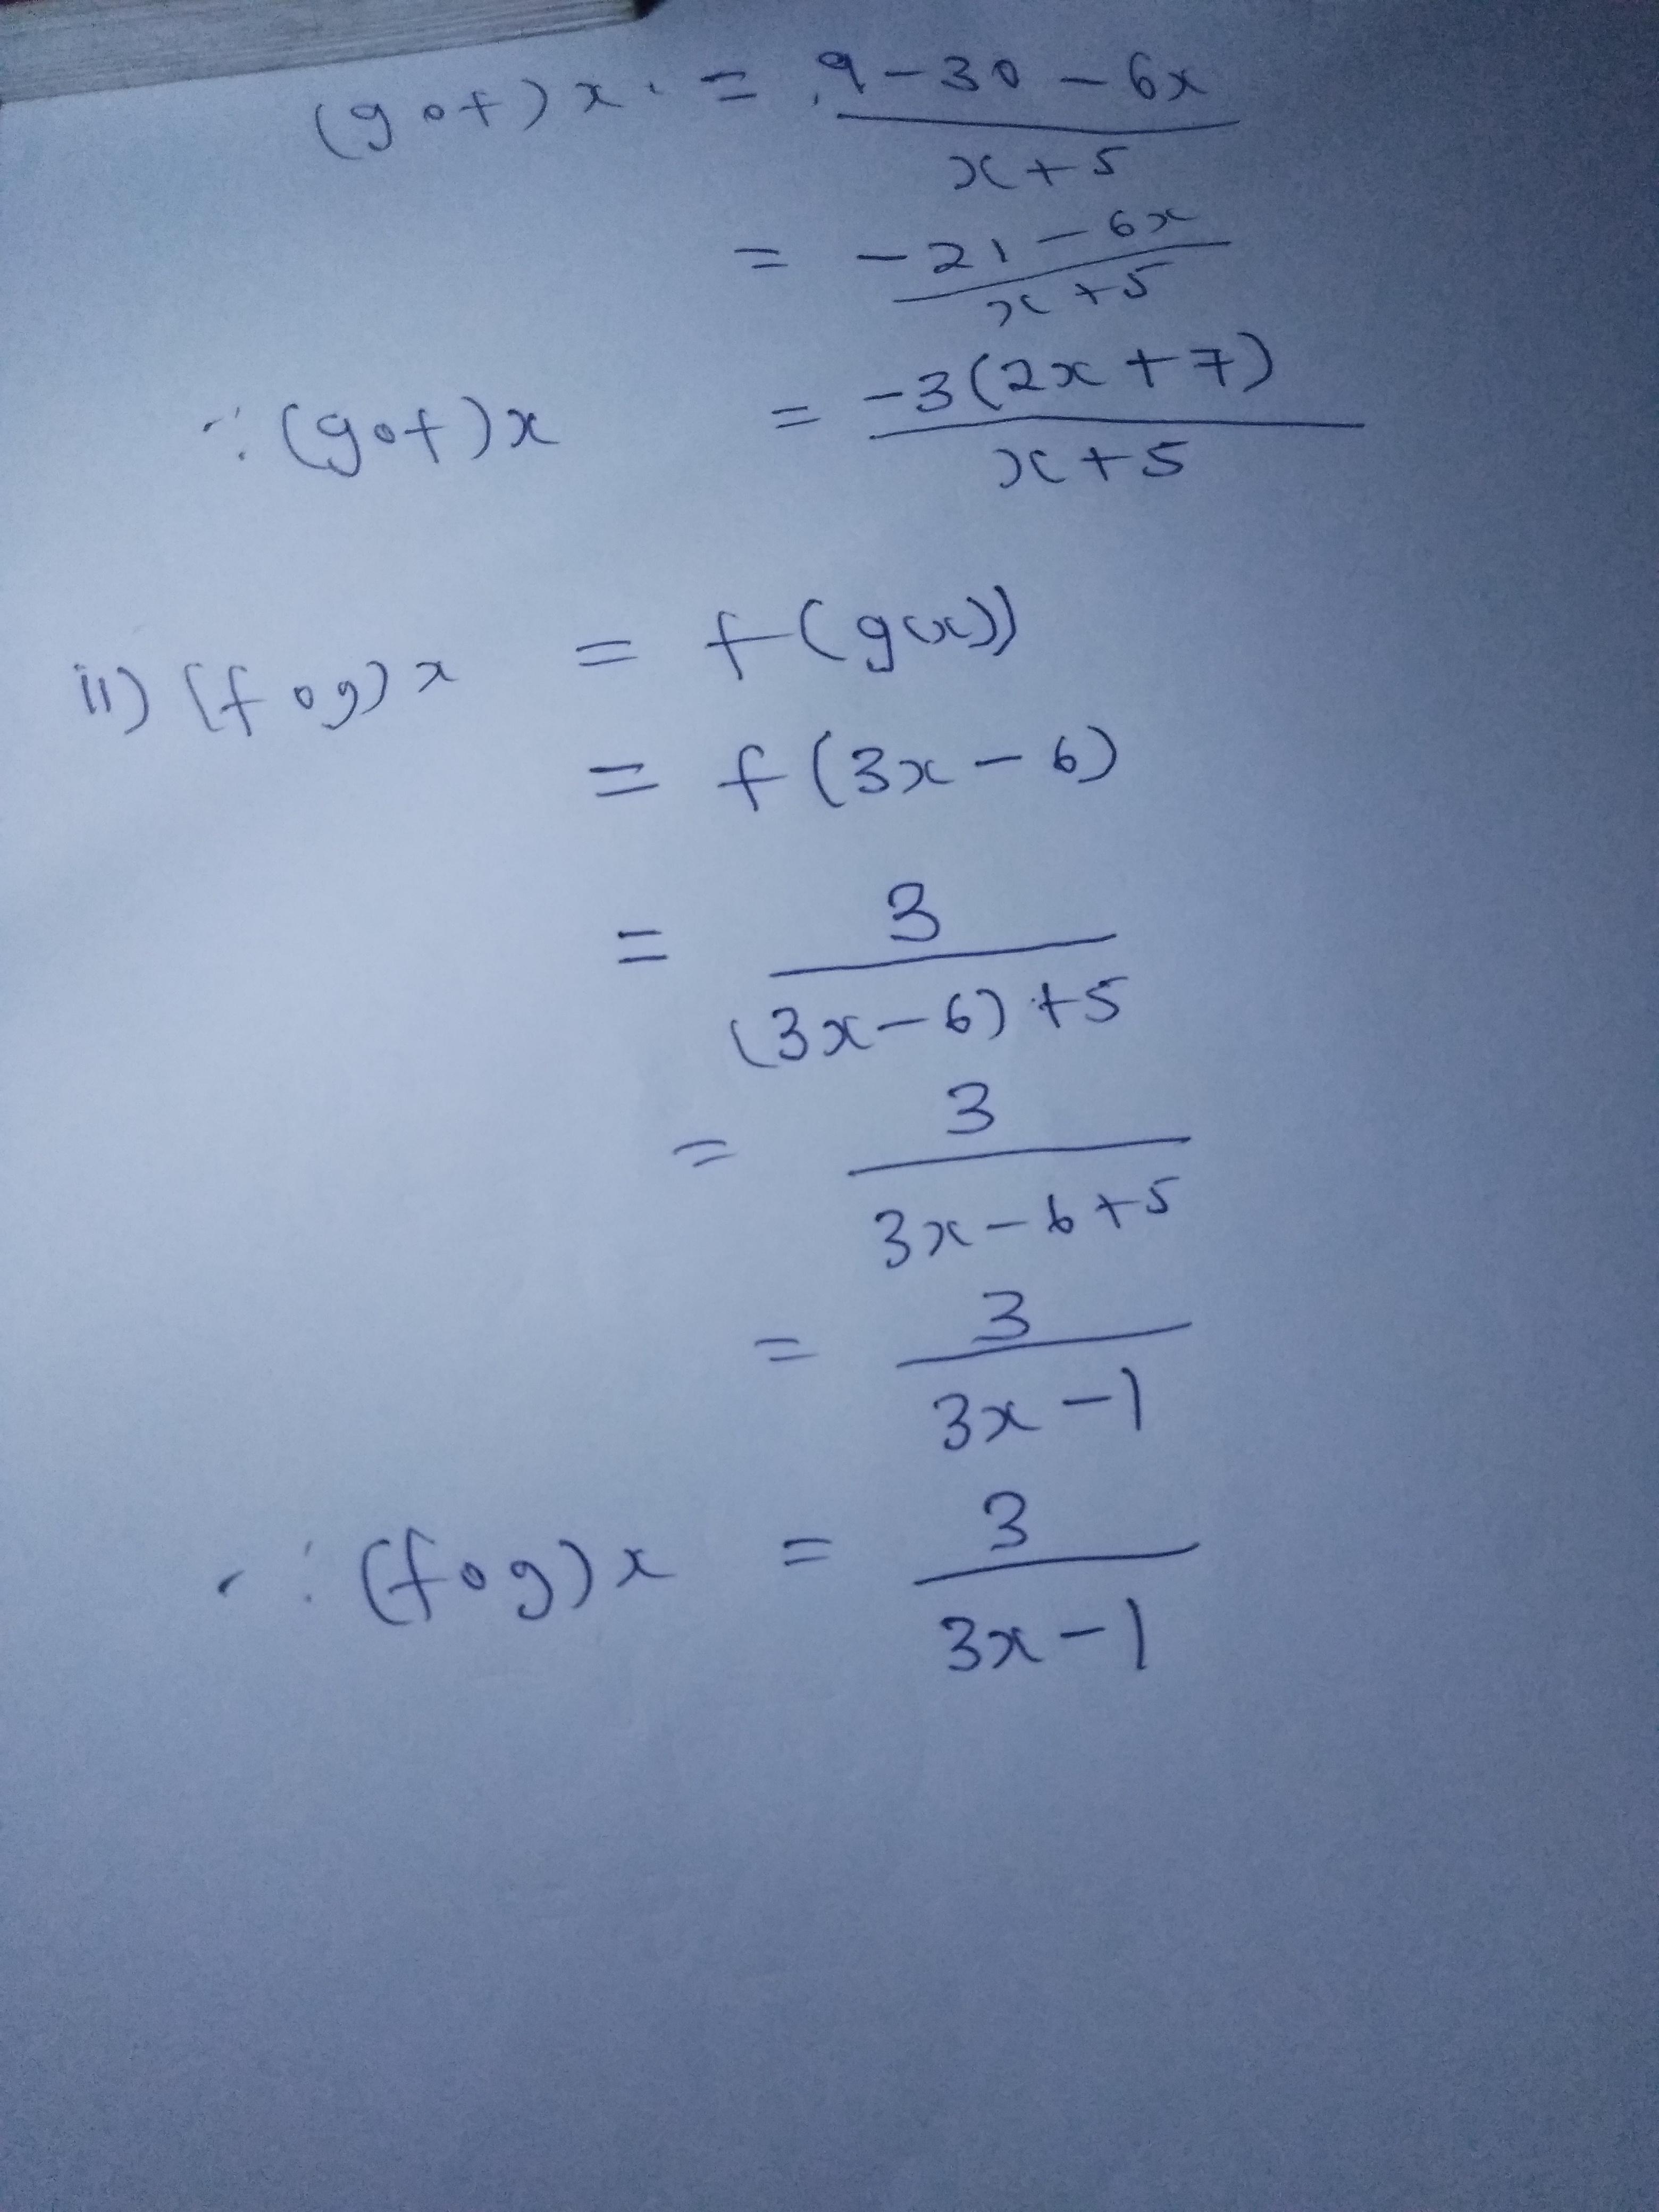 (gof)x. = 9-30-6x / x+5
= -21-6x / x+5
∴ (gof)x = -3(2x+7) / x+5
ii) (fog)x = f(g(x))
= f(3x-6)
= 3 / (3x-6)+5
= 3 / 3x-6+5
= 3 / 3x-1
∴ (fog)x = 3 / 3x-1